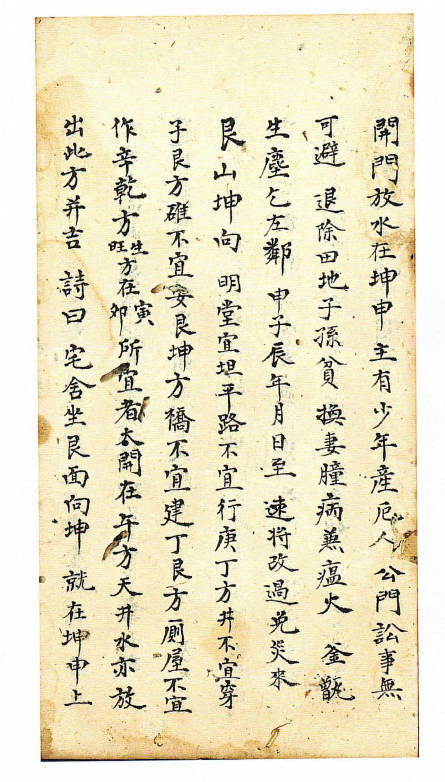 開門放水在坤申 主有少年產厄人 公門訟事無
可避 退除田地子孫貧 換妻瞳病兼瘟火 釜甑
生塵乞左鄰 申子辰年月日至 速將改過免災來
艮山坤向 明堂宜坦平路不宜行庚丁方井不宜穿
子艮方碓不宜安艮坤方橋不宜建丁艮方厠屋不宜
作辛乾方生旺方在寅卯所宜者大開在午方天井水亦放
出此方并吉 詩曰 宅舍坐艮面向坤 就在坤申上